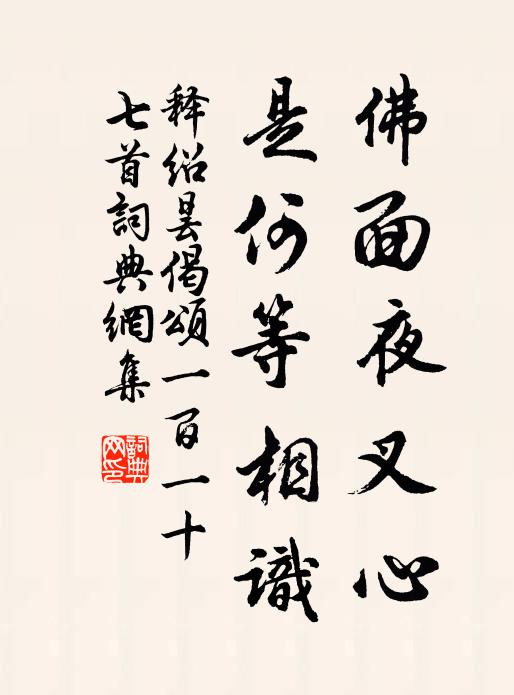 佛面夜叉心
是何等相識
释绍昙偈頌一百一十
七首詞典網集
詞典网印